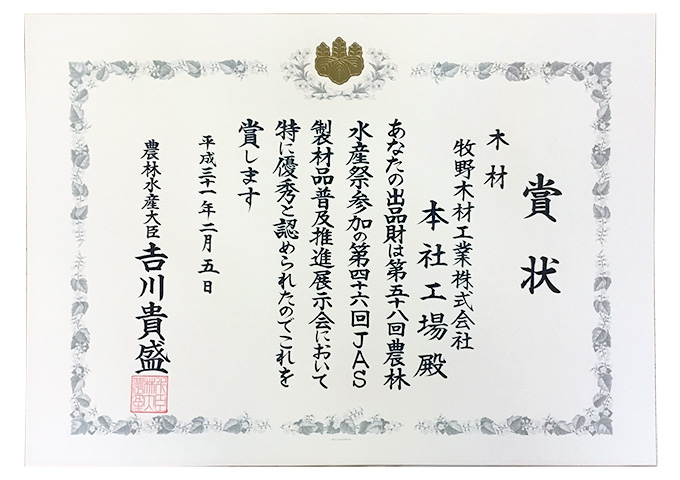 賞状
木材
牧野木材工業株式会社
本社工場殿
あなたの出品財は第五十八回農林
水産祭参加の第四十六回JAS
製材品普及推進展示会において
特に優秀と認められたのでこれを
賞します
平成三十一年二月五日
農林水産大臣 𠮷川貴盛